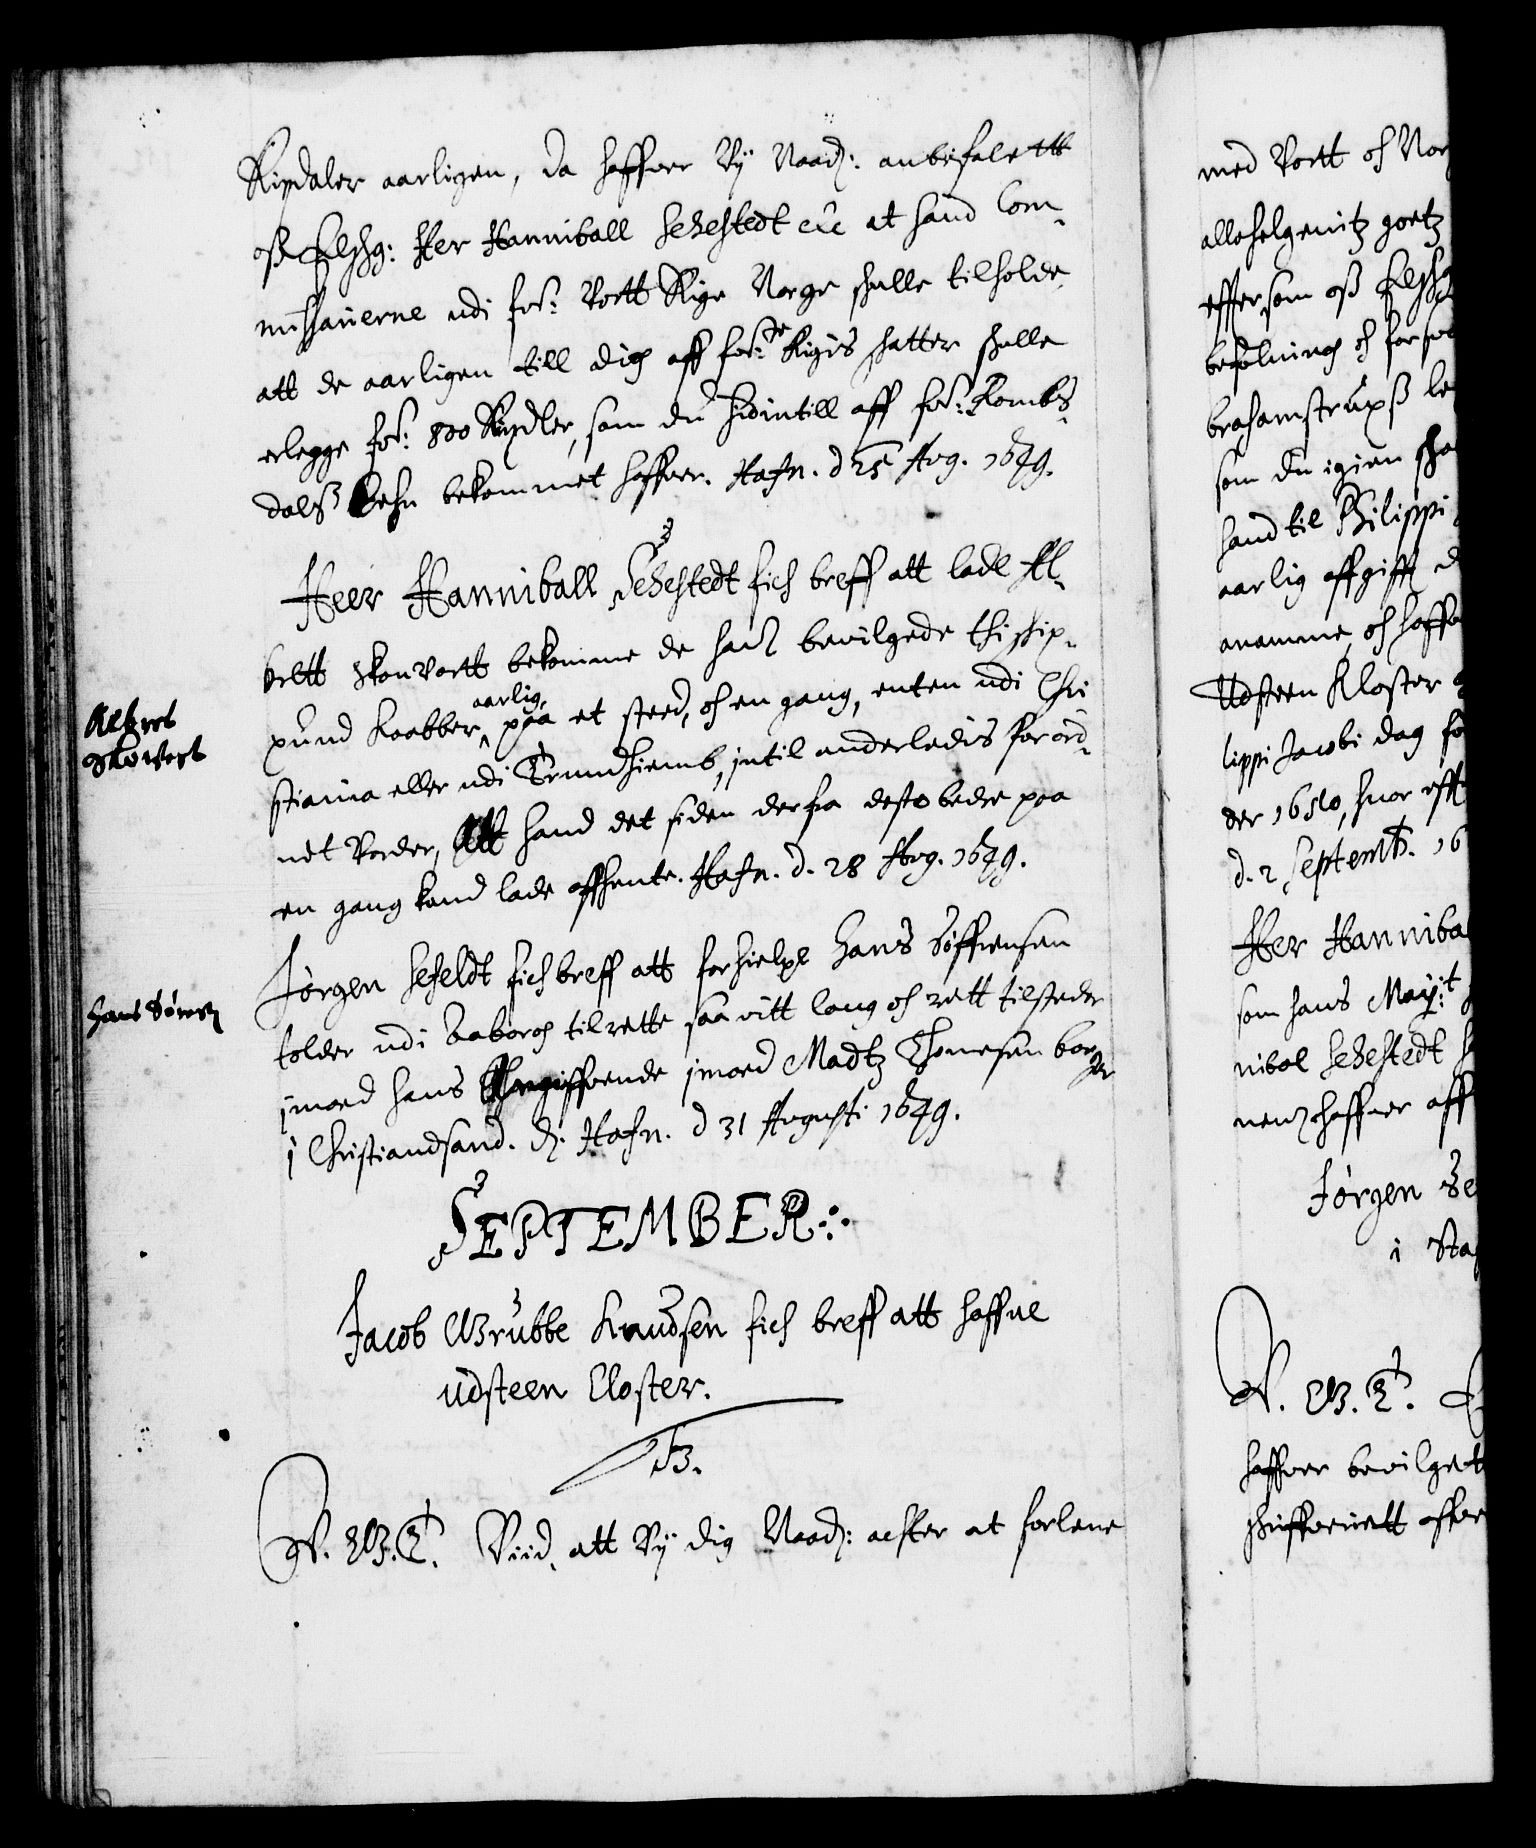 Rixdaler aarligen, da haffver Vij Naad: anbefalett
oß Elshg: Her Hanniball Sehestedt etc at hand Com-
missarierne udi fors: Vortt Rige Norge skulle tilholde,
att de aarligen till dig aff fors:te Rigis skatter skulle
erlegge fors: 800 Rixdler, som du hidintill aff fors: Rombs-
dalß Lehn bekommet haffver. Hafn. d 25 Aug. 1649.
Heer Hanniball Sehestedt fich breff att lade Al-
brett skouvortt bekomme de ham bevilgede thi skip-
pund Kaabber, aarlig, paa et steed, och en gang, enten udi Chri-
stiania eller udi Trundhiemb, intil anderledis forord-
net vorder, Att hand det siden derfra desto bedre paa
en gang kand lade affhente. Hafn. d. 28 Aug. 1649.
Albret
Skovort
Jørgen Sefeldt fich breff att forhielpe Hans Søffrensen
tolder udi Aaborg til rette saa vitt loug och rett tilsteder
imoed hans Angiffvende imoed Madtz Thomesen borger
i Christiandsand. d. Hafn. d 31 Augusti 1649.
Hans Sørens
SEPTEMBER:
Jacob Grubbe Knudsen fich breff att haffve
Udsteen Closter.
S3.
V. G. T. Viid, att Vij dig Naad: acter at forlene
med Vortt och Nor
allehelgenitz goetz
effter som oß Elshg
befalning och forsva
brahamstrupß le
som du igien ska
hand til Philippi
aarlig affgifft
anamme, och haffve
Udsteen Kloster
lippi Jacobi dag for
der 1650, huor efft
d. 2 Septemb. 16
Her Hanniba
som hans Mayt:
nibal Sehestedt
nem haffver aff
Jørgen Se
i Sta
V. G. T.
haffver bevilgett